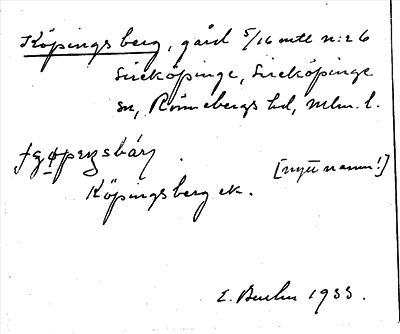 Köpingsberg, gård 5/16 mtl n:r 6
Sireköpinge, Sireköpinge
sn, Rönnebergs hd, Mlm. l.
Köpingsberg ek. [nytt namn!]
E. 1933.